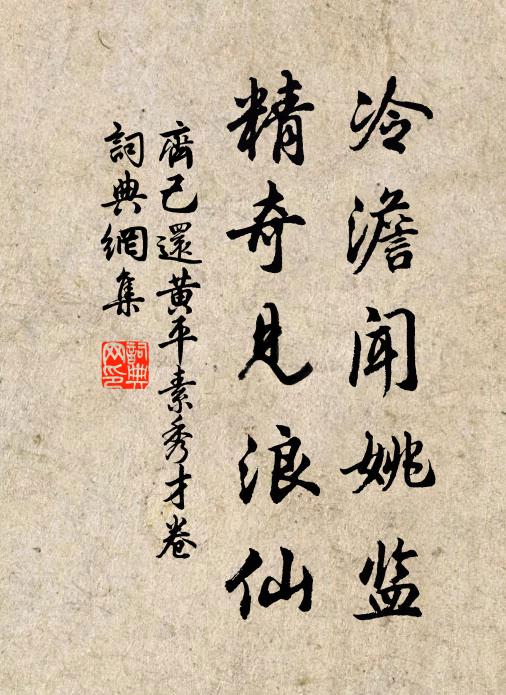 冷澹闻姚监
精奇见浪仙
齊己還黄平素秀才卷
詞典網集
詞典网印